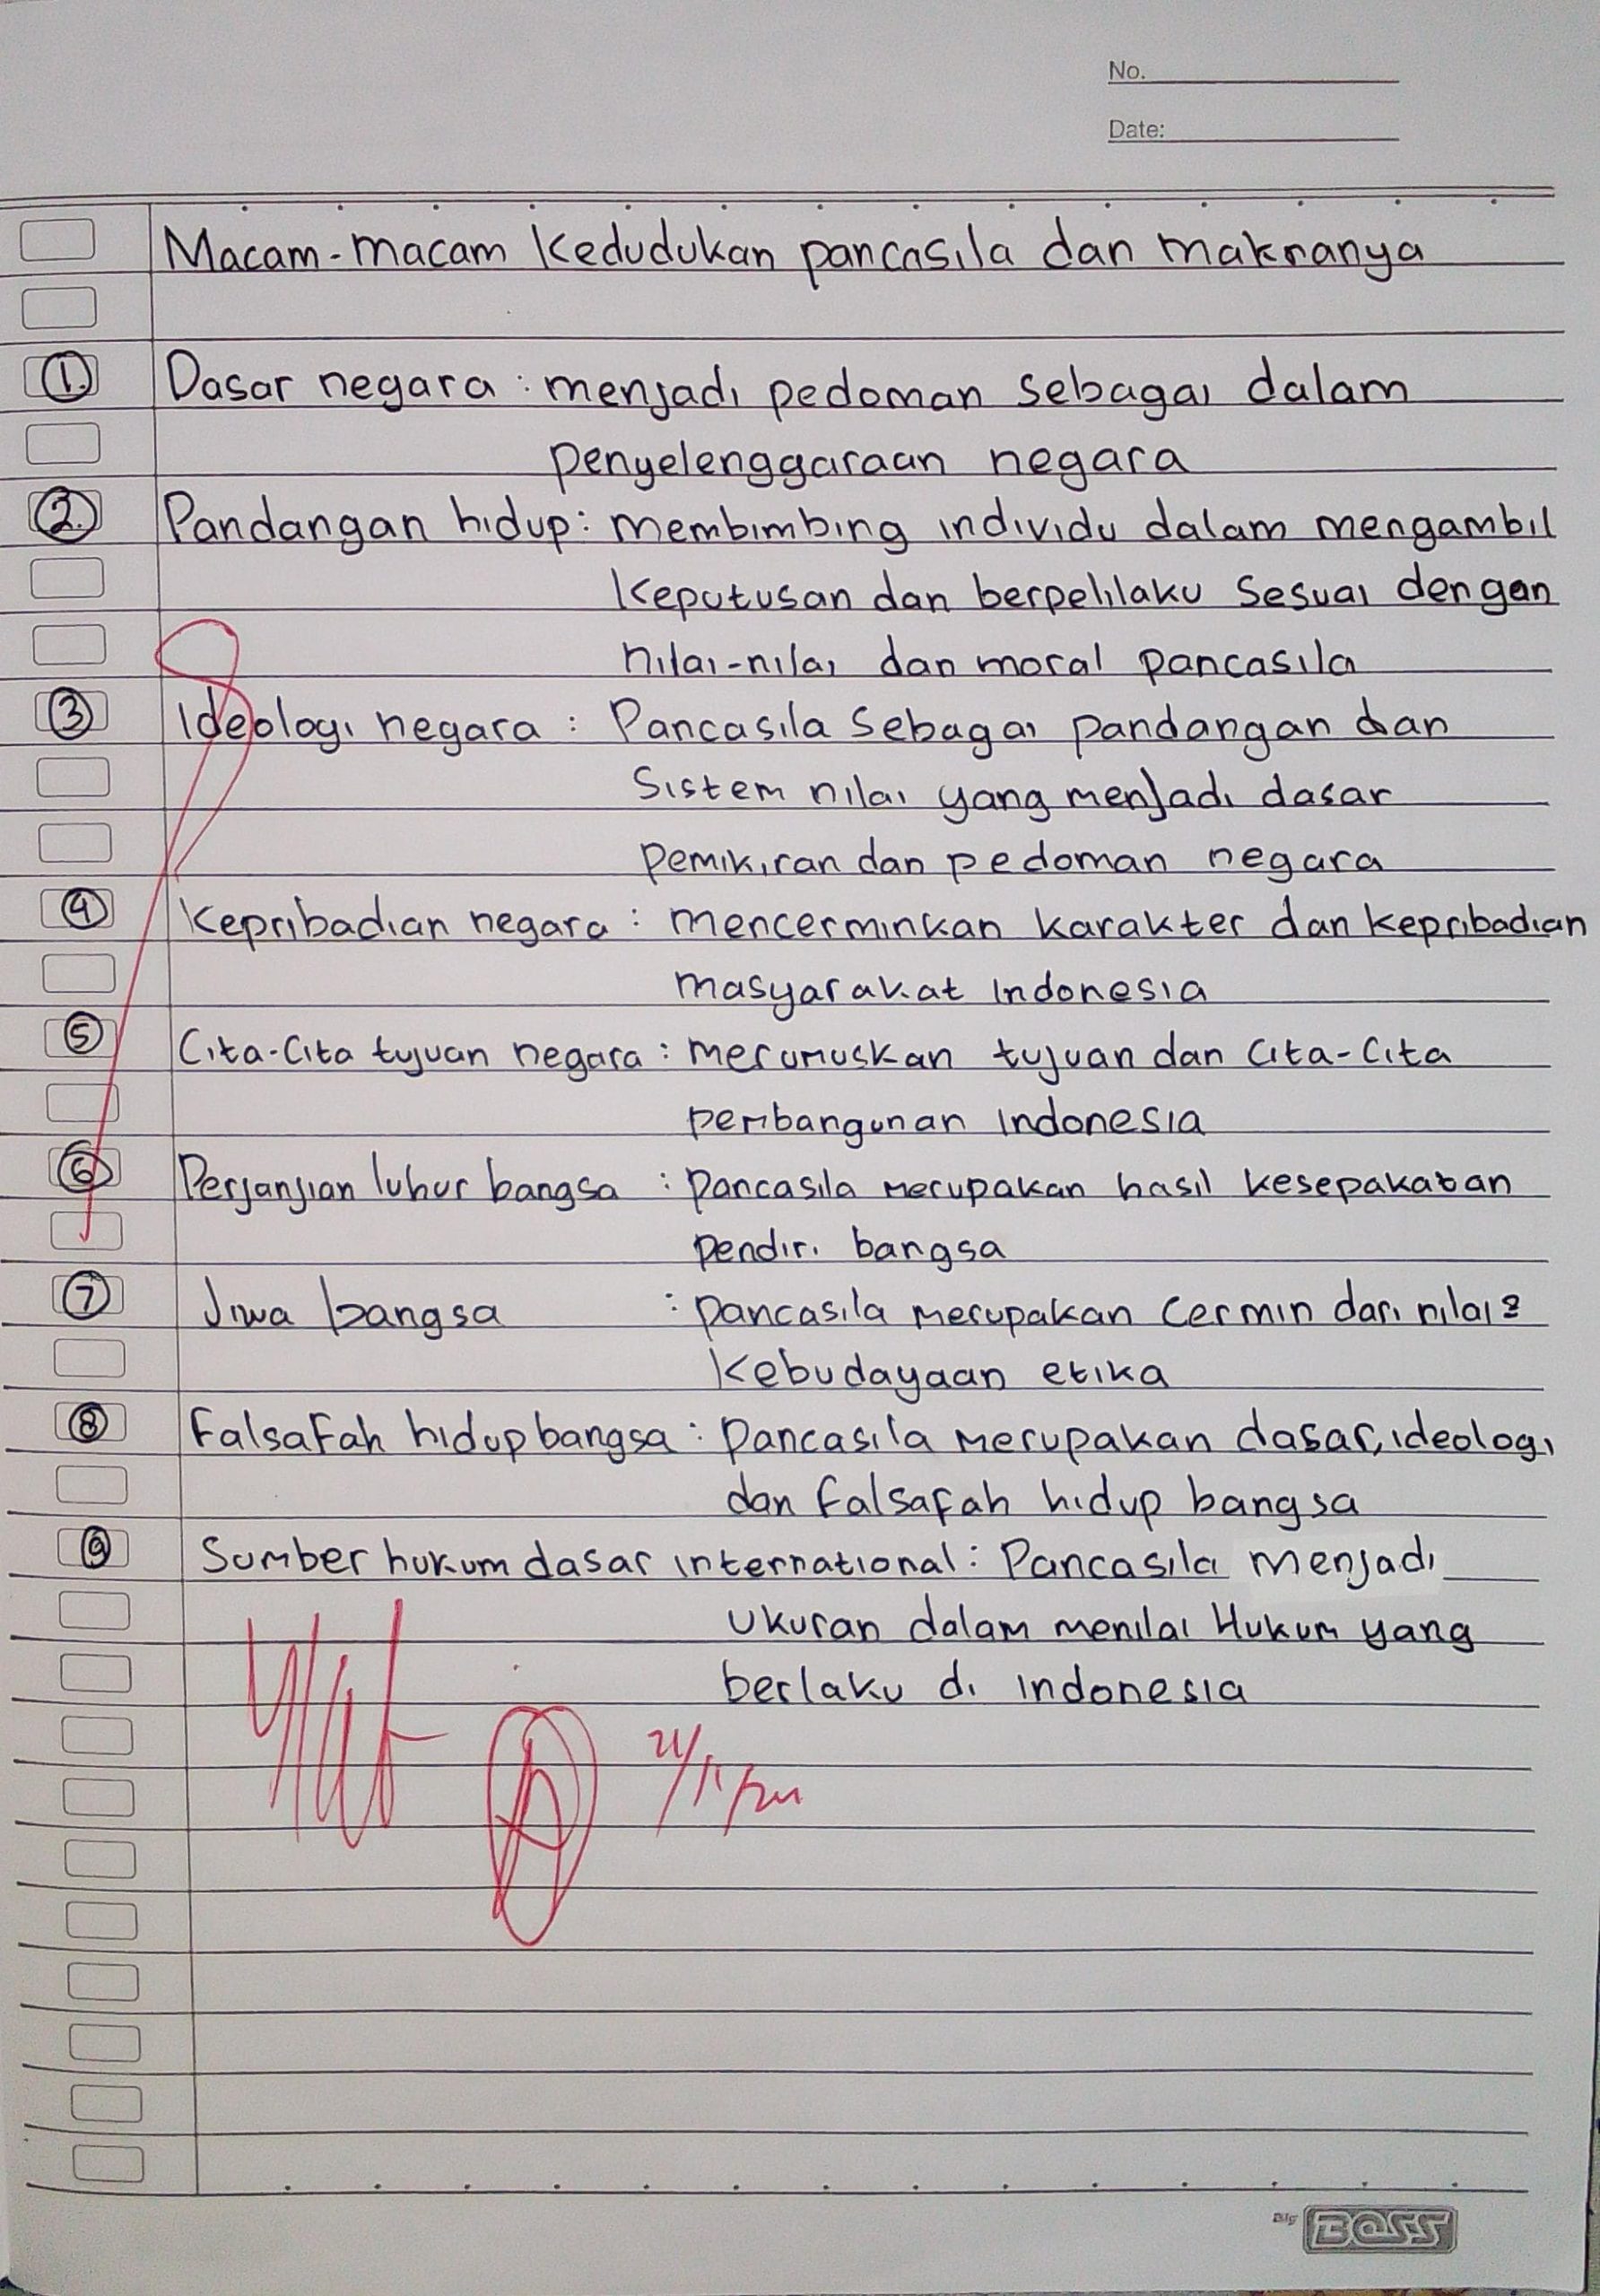 No.
Date:
Macam-macam Kedudukan pancasila dan maknanya
1. Dasar negara : menjadi pedoman sebagai dalam
penyelenggaraan negara
2. Pandangan hidup : membimbing individu dalam mengambil
Keputusan dan berpelilaku Sesuai dengan
nilai-nilai dan moral pancasila
3 Ideologi negara : Pancasila Sebagai pandangan dan
Sistem nilai yang menjadi dasar
pemikiran dan pedoman negara
4 Kepribadian negara : mencerminkan karakter dan kepribadian
masyarakat Indonesia
5 Cita-Cita tujuan negara : merumuskan tujuan dan Cita-Cita
pembangunan Indonesia
6 Perjanjian luhur bangsa : pancasila merupakan hasil kesepakatan
pendiri bangsa
7 Jiwa bangsa : pancasila merupakan Cermin dari nilai2
Kebudayaan etika
8 Falsafah hidup bangsa : pancasila merupakan dasar, ideologi
dan falsafah hidup bangsa
9 Sumber hukum dasar international : Pancasila menjadi
Ukuran dalam menilai Hukum yang
berlaku di indonesia
Big BOSS